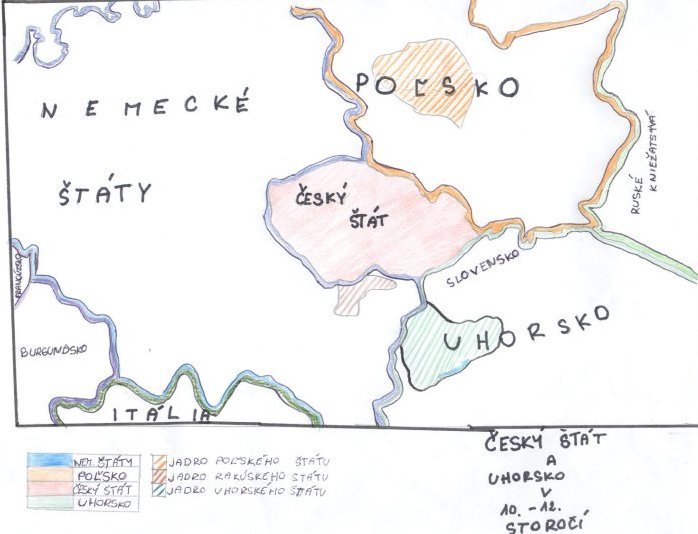 POĽSKO
NEMECKÉ
ŠTÁTY
RUSKÉ
KNIEŽATSTVÁ
ČESKÝ
ŠTÁT
SLOVENSKO
FRANCÚZSKO
UHORSKO
BURGUNDSKO
ITÁLIA
NEM. ŠTÁTY
POĽSKO
ČESKÝ ŠTÁT
UHORSKO
JADRO POĽSKÉHO ŠTÁTU
JADRO RAKÚSKEHO ŠTÁTU
JADRO UHORSKÉHO ŠTÁTU
ČESKÝ ŠTÁT
A
UHORSKO
V
10. - 12.
STOROČÍ